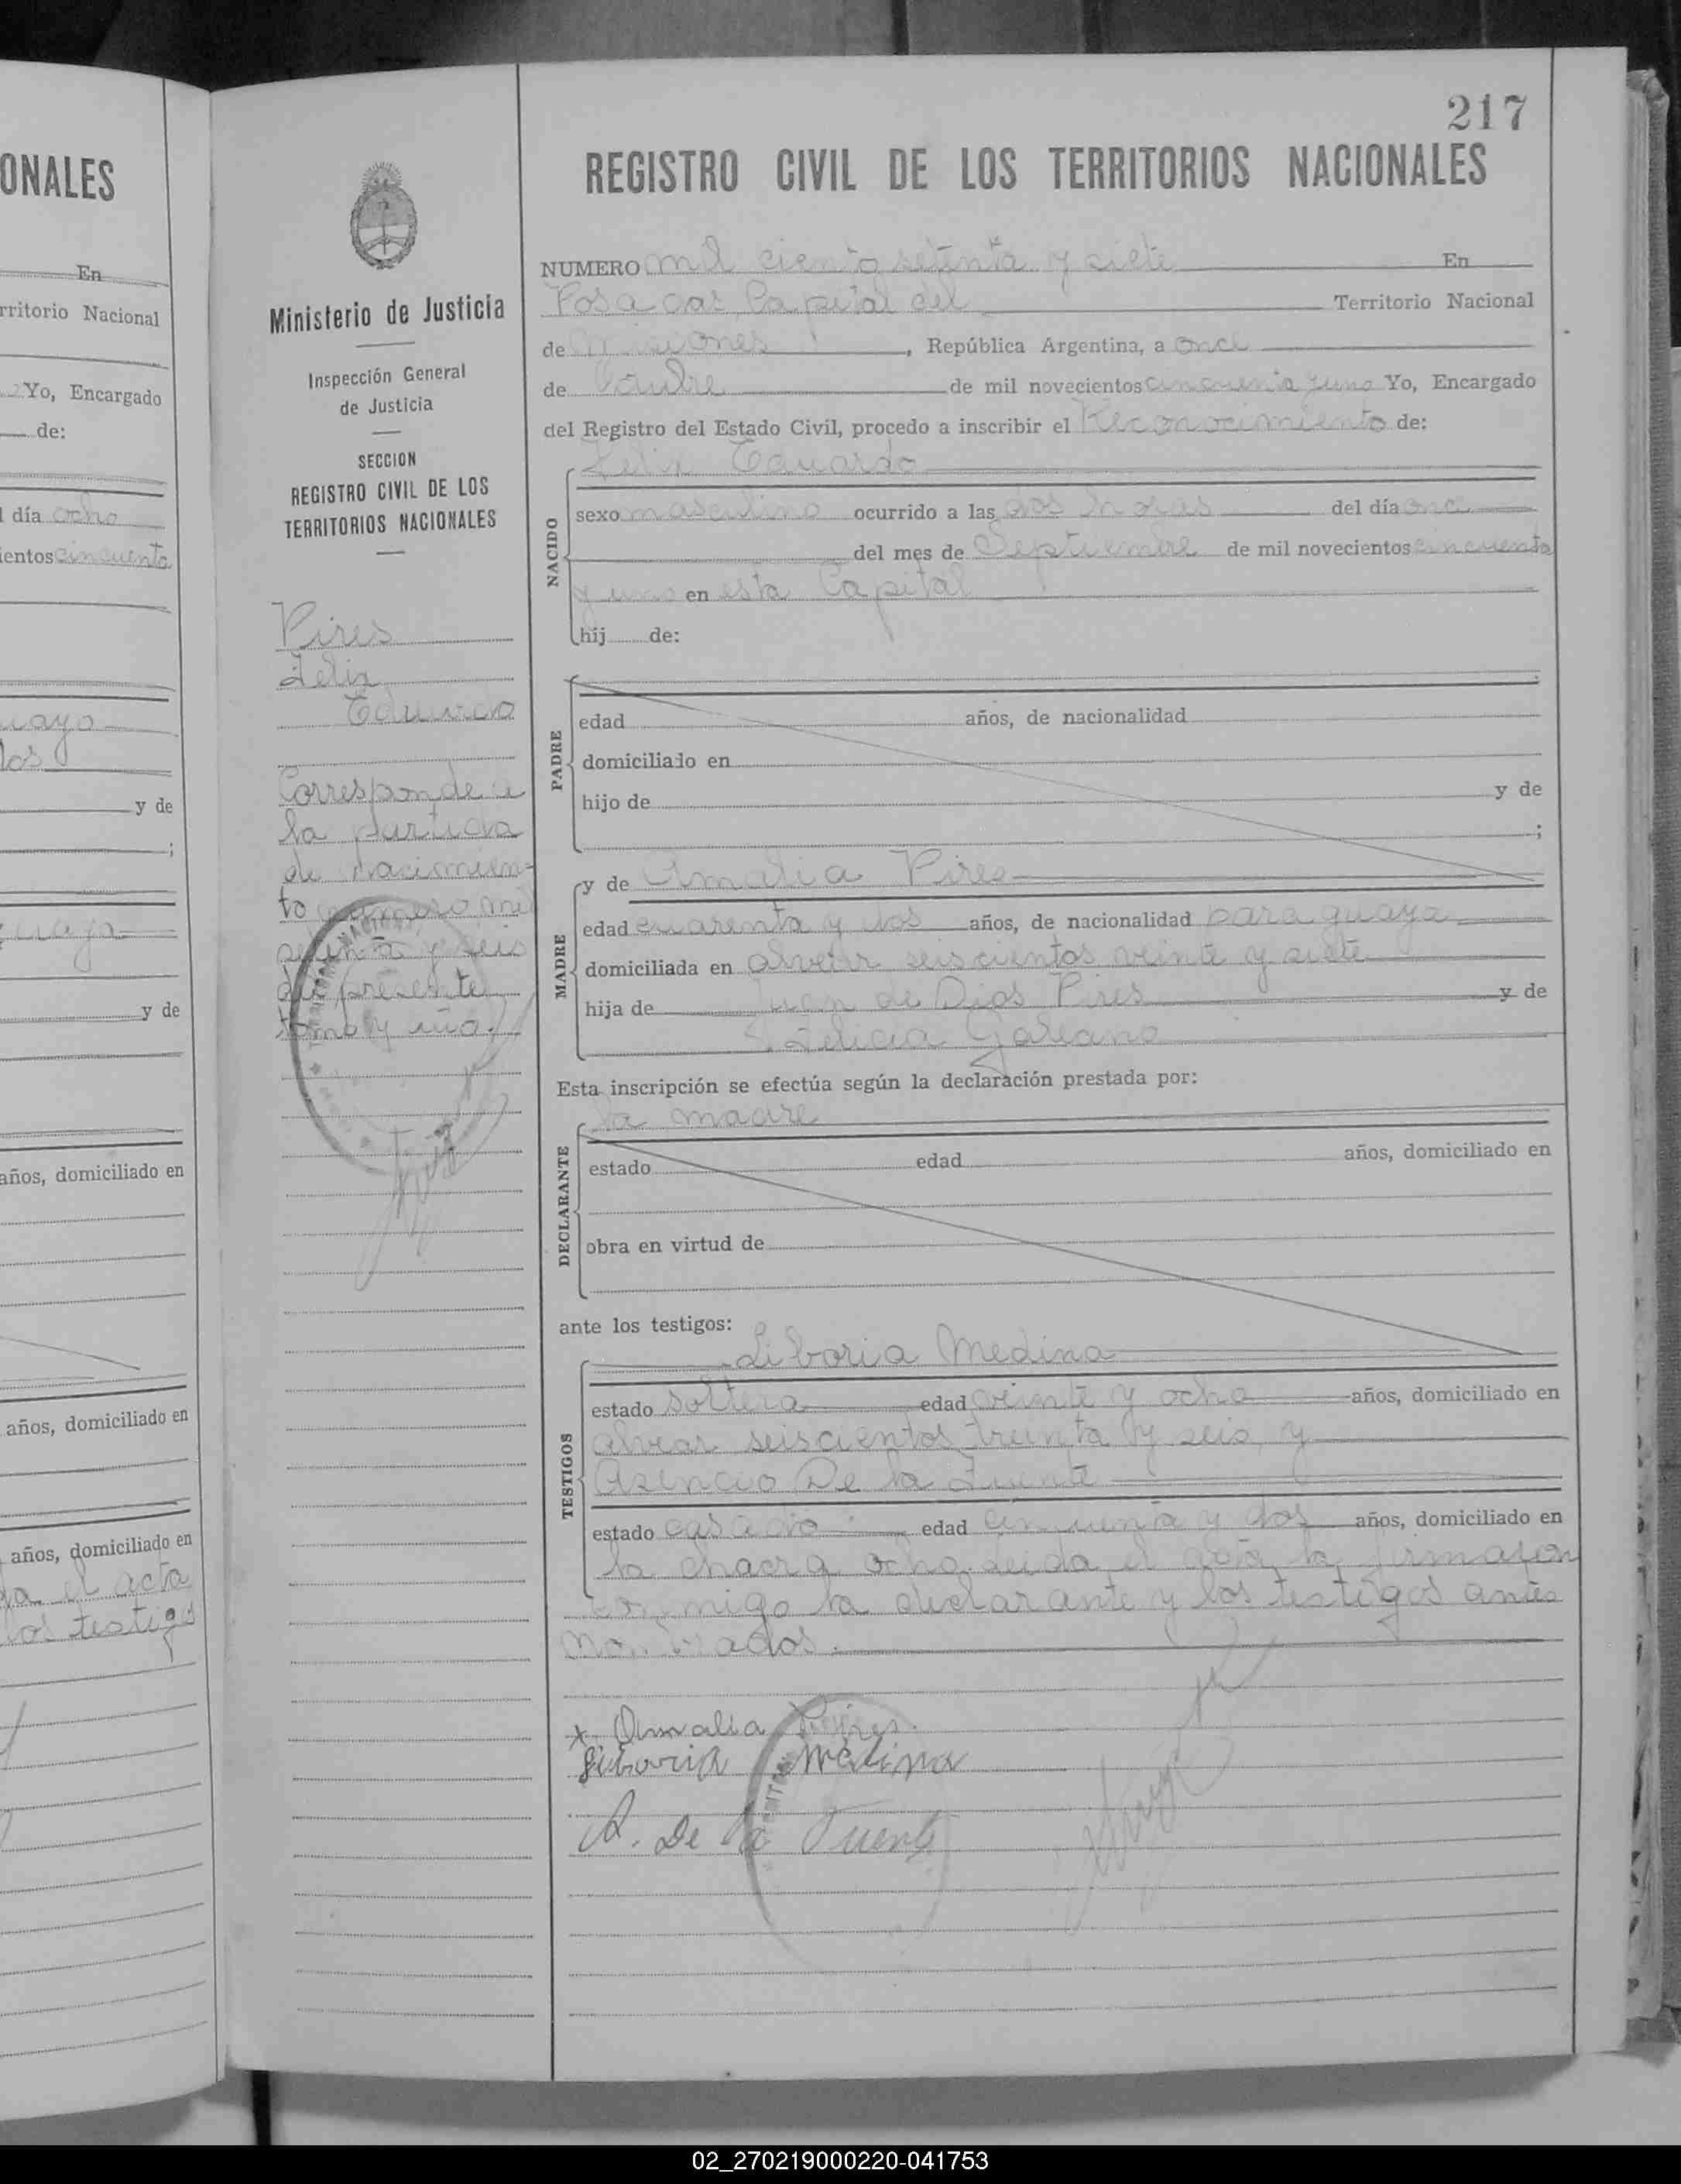 ONALES
En
rritorio Nacional
Yo, Encargado
de:
l día ocho
ientos cincuenta
y de
;
y de
años, domiciliado en
años, domiciliado en
años, domiciliado en
el acta
los testigo
217
REGISTRO CIVIL DE LOS TERRITORIOS NACIONALES
Ministerio de Justicia
Inspección General
de Justicia
SECCION
REGISTRO CIVIL DE LOS
TERRITORIOS NACIONALES
Pires
Felix
Eduardo
Corresponde a
la partida
de nacimien-
to numero mil
setenta y seis
del presente
tomo y año.
NUMERO mil ciento setenta y siete En
Posadas Capital del Territorio Nacional
de Misiones, República Argentina, a once
de Octubre de mil novecientos cincuenta y uno Yo, Encargado
del Registro del Estado Civil, procedo a inscribir el Reconocimiento de:
Felix Eduardo
NACIDO
sexo masculino ocurrido a las dos horas del día once
del mes de Septiembre de mil novecientos cincuenta
y uno en esta Capital
hij de:
PADRE
edad años, de nacionalidad
domiciliado en
hijo de y de
;
MADRE
y de Amalia Pires
edad cuarenta y dos años, de nacionalidad paraguaya
domiciliada en alvear seiscientos veinte y siete
hija de Juan de Dios Pires y de
Felicia Galeano
Esta inscripción se efectúa según la declaración prestada por:
la madre
DECLARANTE
estado edad años, domiciliado en
obra en virtud de
ante los testigos:
Liboria Medina
TESTIGOS
estado soltera edad veinte y ocho años, domiciliado en
alvear seiscientos treinta y seis, y
Asencio De la Fuente
estado casado edad cincuenta y dos años, domiciliado en
la chacra ocho. Leida el acta la firmaron
conmigo la declarante y los testigos antes
nombrados.
x Amalia Pires.
Liboria Medina
A. De la Fuente
02_270219000220-041753